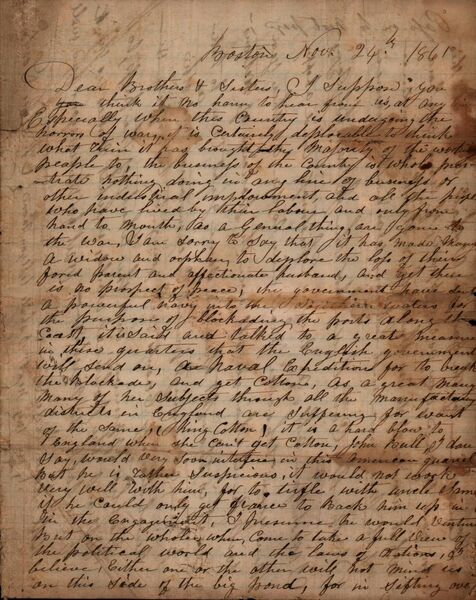 Boston Nov. 24th 1861
Dear Brothers & Sisters, I Suppose you
think it no harm to hear from us, at any
Especially when this Country is undergoing the
horrors of war, it is Certainly deplorable to think
what ruin it has brought the Majority of the working
people to, the business of the Country is whole pros-
trate nothing doing in any kind of business or
other industrial employment, and all the
who have lived by their labour and only from
hand to mouth, as a General thing, are gone to
the war, I am Sorry to Say that it has made many
a widow and orphan, to deplore the loss of their
fond parent and affectionate husband, and yet there
is no prospect of peace, the government have
a powerful navy into the Southern waters for
the purpose of blockading the ports along the
Coast, it is said and talked to a great measure
in these quarters that the English government
will Send on, a Naval Expedition for to break
the Blockade, and get Cotton, as a great many
many of her Subjects through all the manufacturing
districts in England are Suffering for want
of the Same, King Cotton, it is a hard blow to
England when she can't get Cotton, John Bull I dare
Say, would very Soon interfere in this American quarrel
But he is rather Suspicious, it would not work
very well with him, for to trifle with uncle Sam
if he could only get France to Back him up in
in the Engagement, I presume he would venture
But on the whole when Come to take a full view of
the political world and the laws of Nations, I
believe, Either one or the other will not mind us
on this Side of the big pond, for in Sifting over